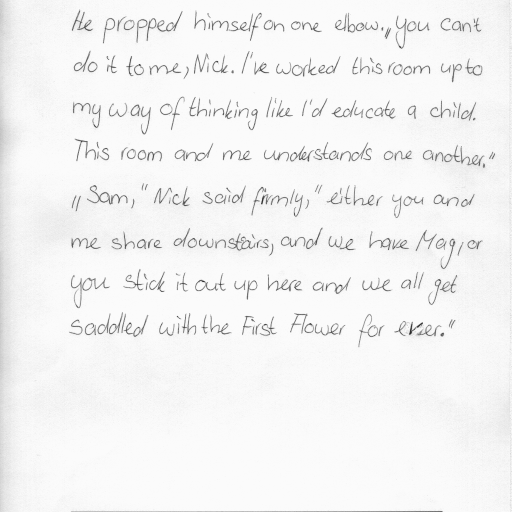 He propped himself on one elbow. „You can't
do it to me, Nick. I've worked this room up to
my way of thinking like I'd educate a child.
This room and me understands one another."
„Sam," Nick said firmly, "either you and
me share downstairs, and we have Mag, or
you stick it out up here and we all get
saddled with the First Flower for ever."